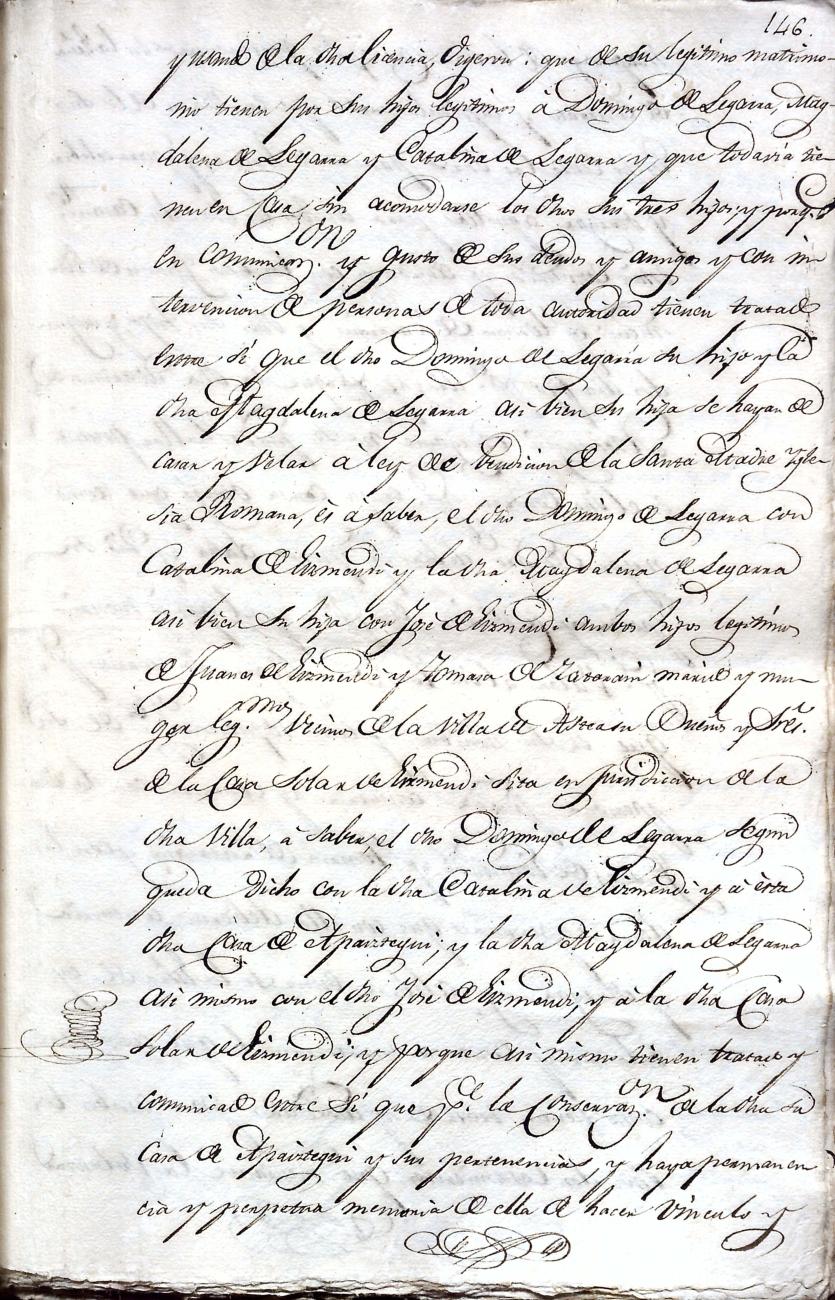 146.
y usando de la dha licencia, digeron: que de su legitimo matrimo-
nio tienen por sus hijos legitimos á Domingo de Legarra, Mag-
dalena de Legarra y Catalina de Legarra y que todavia tie-
nen en Casa sin acomodarse los dhos sus tres hijos; y porq.e
en comunicaz.on y gusto de sus deudos y amigos y con in-
tervencion de personas de toda autoridad tienen tratado
entre sí que el dho Domingo de Legarra su hijo y la
dha Magdalena de Legarra asi bien su hija se hayan de
casar y velar á ley de bendicion de la Santa Madre Ygle-
sia Romana, es á saber, el dho Domingo de Legarra con
Catalina de Eizmendi y la dha Magdalena de Legarra
asi bien su hija con José de Eizmendi ambos hijos legitimos
de Juanes de Eizmendi y Tomasa de Zatarain marido y mu-
ger leg.mos Vecinos de la Villa de Asteasu Dueños y Sres.
de la Casa Solar de Eizmendi sita en jurisdiccion de la
dha Villa, á saber, el dho Domingo de Legarra segun
queda dicho con la dha Catalina de Eizmendi y á esta
dha Casa de Apaiztegui; y la dha Magdalena de Legarra
asi mismo con el dho José de Eizmendi, y á la dha Casa
Solar de Eizmendi; y porque asi mismo tienen tratado y
comunicado entre sí que p.a la Conservaz.on de la dha su
Casa de Apaiztegui y sus pertenencias, y haya permanen
cia y perpetua memoria de ella de hacer vinculo y